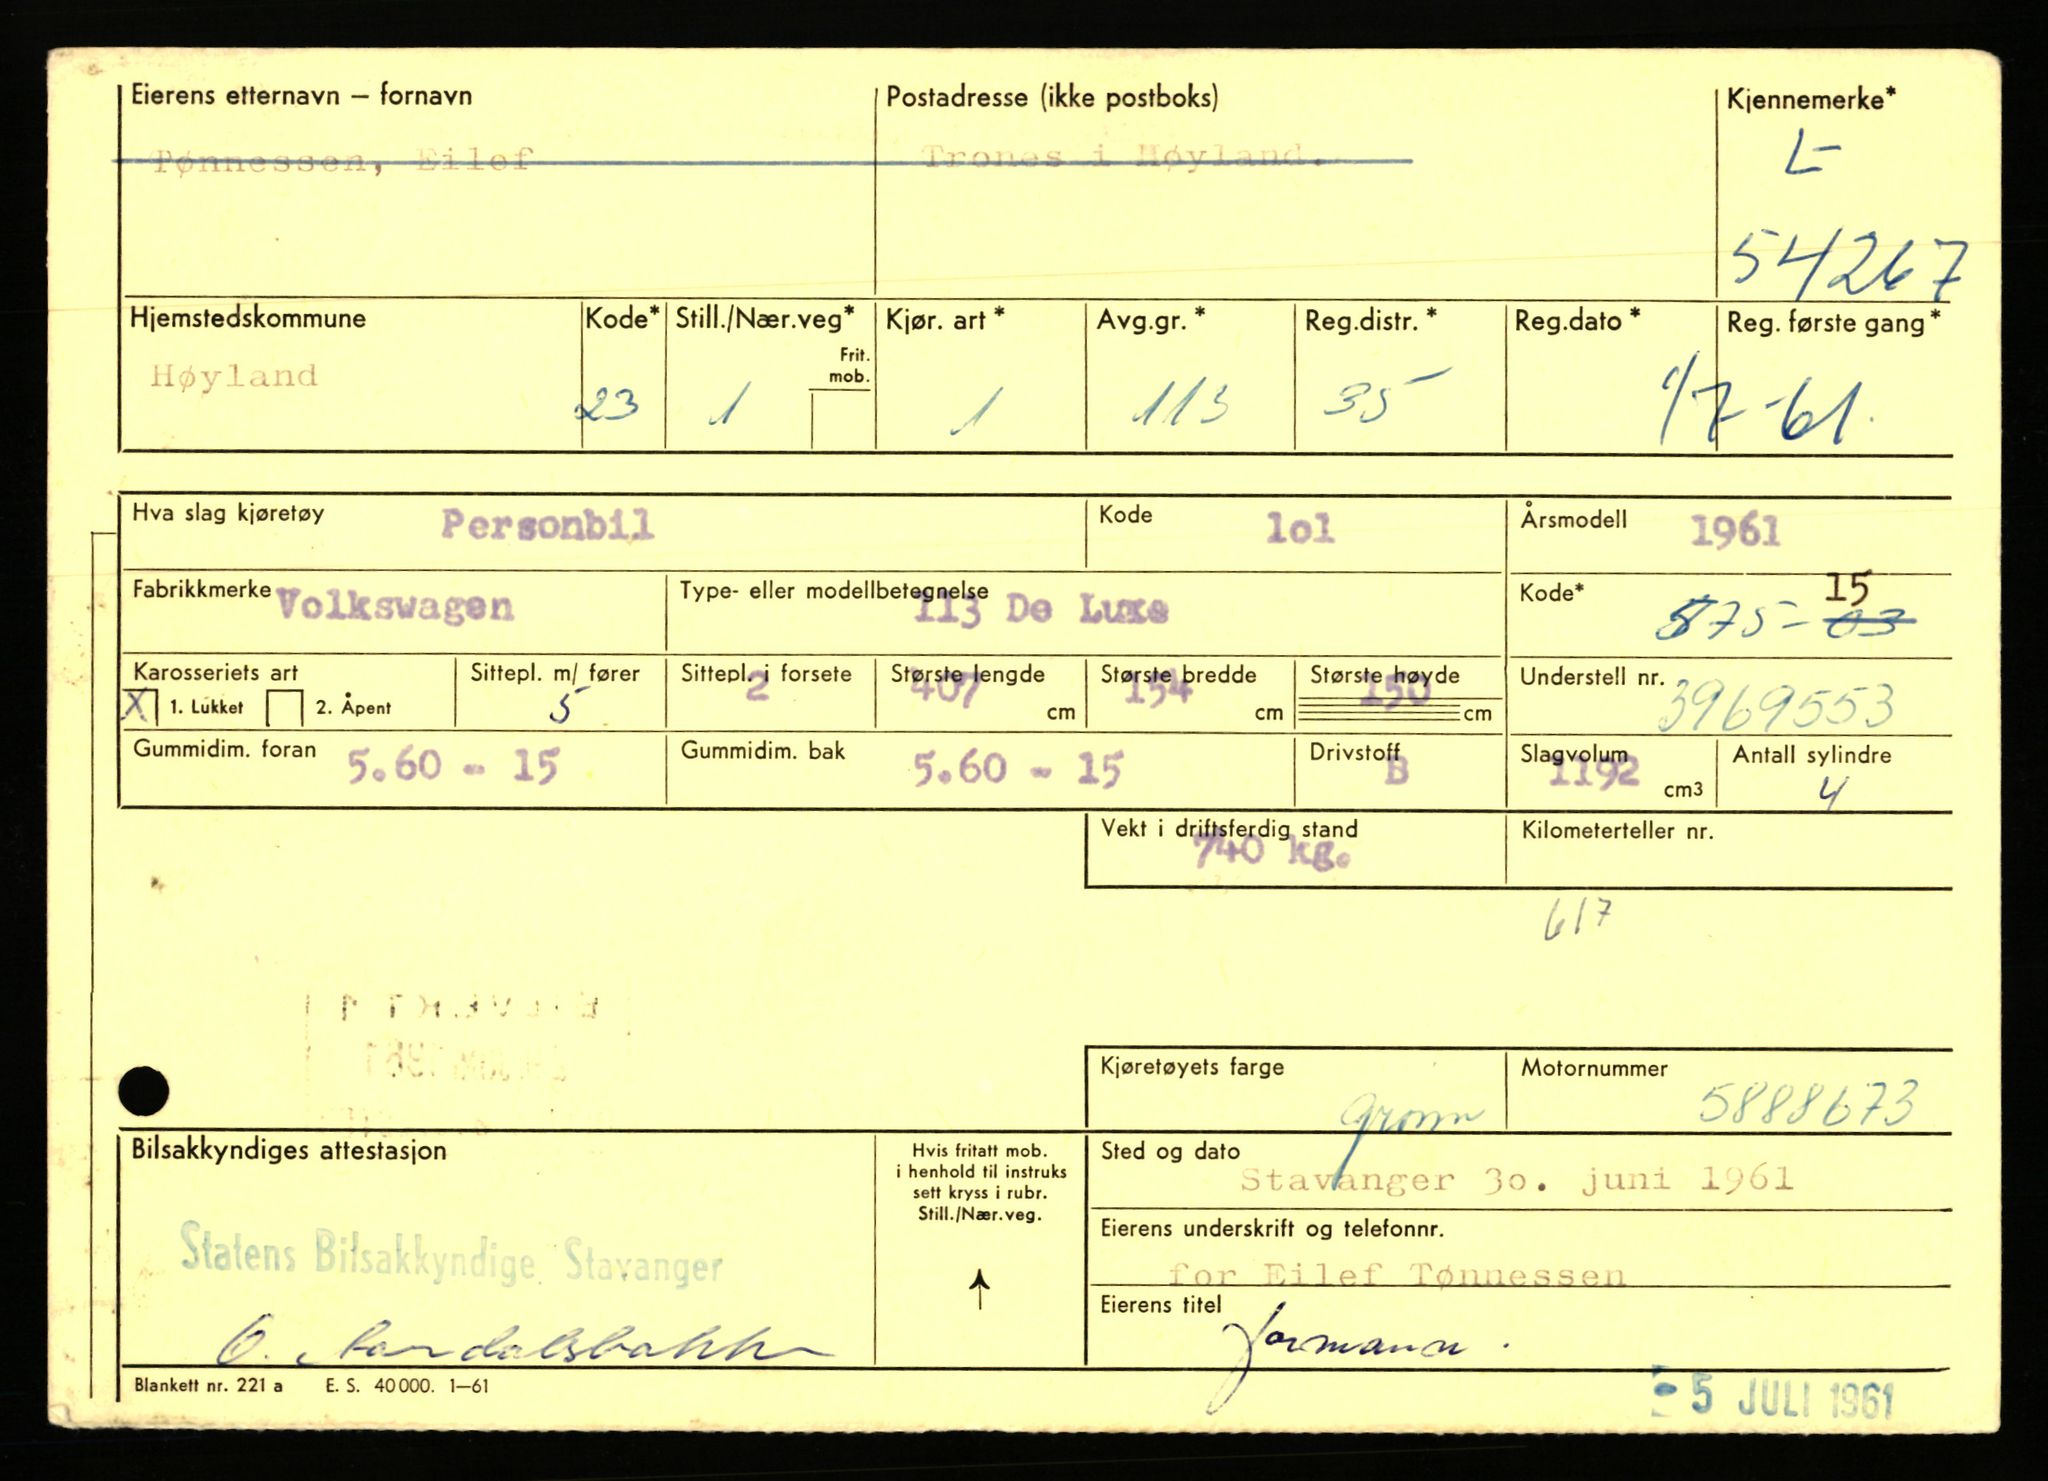 Eierens etternavn – fornavn
Postadresse (ikke postboks)
Kjennemerke*
Tønnessen, Eilef
Trones i Høyland.
L-
54267
Hjemstedskommune
Kode*
Still./Nær.veg*
Kjør. art*
Avg.gr.*
Reg.distr.*
Reg.dato*
Reg. første gang*
Frit.
mob.
Høyland
23
1
1
113
35
1/7-61.
Hva slag kjøretøy
Personbil
Kode
lol
Årsmodell
1961
Fabrikkmerke
Volkswagen
Type- eller modellbetegnelse
113 De Luxe
Kode*
15
875-03
Karosseriets art
Sittepl. m/ fører
Sittepl. i forsete
Største lengde
Største bredde
Største høyde
Understell nr.
X 1. Lukket
2. Åpent
5
2
407
cm
154
cm
150
cm
3969553
Gummidim. foran
5.60 - 15
Gummidim. bak
5.60 - 15
Drivstoff
B
Slagvolum
1192
cm3
Antall sylindre
4
Vekt i driftsferdig stand
740 kg.
Kilometerteller nr.
617
Kjøretøyets farge
Grønn
Motornummer
5888673
Bilsakkyndiges attestasjon
Hvis fritatt mob.
i henhold til instruks
sett kryss i rubr.
Still./Nær.veg.
Sted og dato
Stavanger 3o. juni 1961
Eierens underskrift og telefonnr.
for Eilef Tønnessen
Statens Bilsakkyndige, Stavanger
Eierens titel
formann.
Blankett nr. 221 a E. S. 40 000. 1–61
- 5 JULI 1961